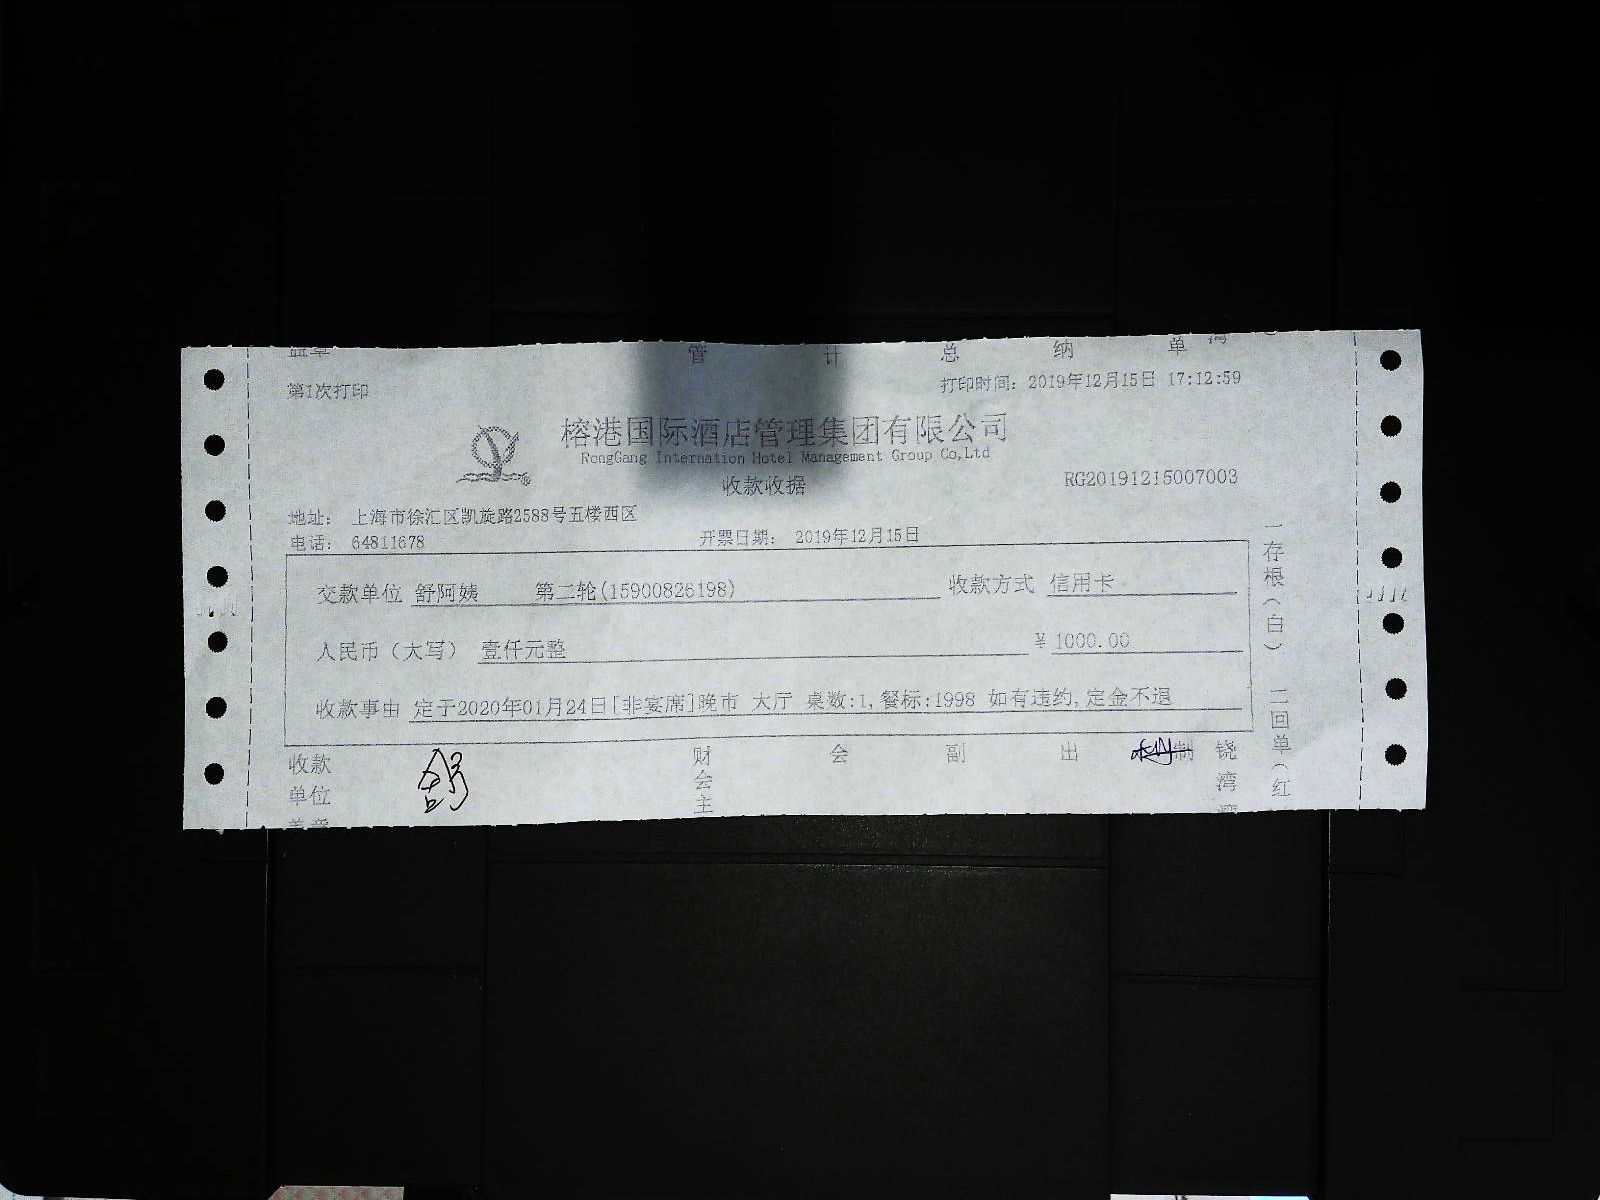 管 计 总 纳 单
第1次打印 打印时间: 2019年12月15日 17:12:59
榕港国际酒店管理集团有限公司
RongGang Internation Hotel Management Group Co,Ltd
收款收据 RG20191215007003
地址: 上海市徐汇区凯旋路2588号五楼西区
电话: 64811678 开票日期: 2019年12月15日
交款单位 舒阿姨 第二轮(15900826198) 收款方式 信用卡
人民币(大写) 壹仟元整 ¥ 1000.00
收款事由 定于2020年01月24日[非宴席]晚市 大厅 桌数:1,餐标:1998 如有违约,定金不退
收款 舒 财 会 副 出 制 饶
单位 会 湾
主
一存根(白) 二回单(红